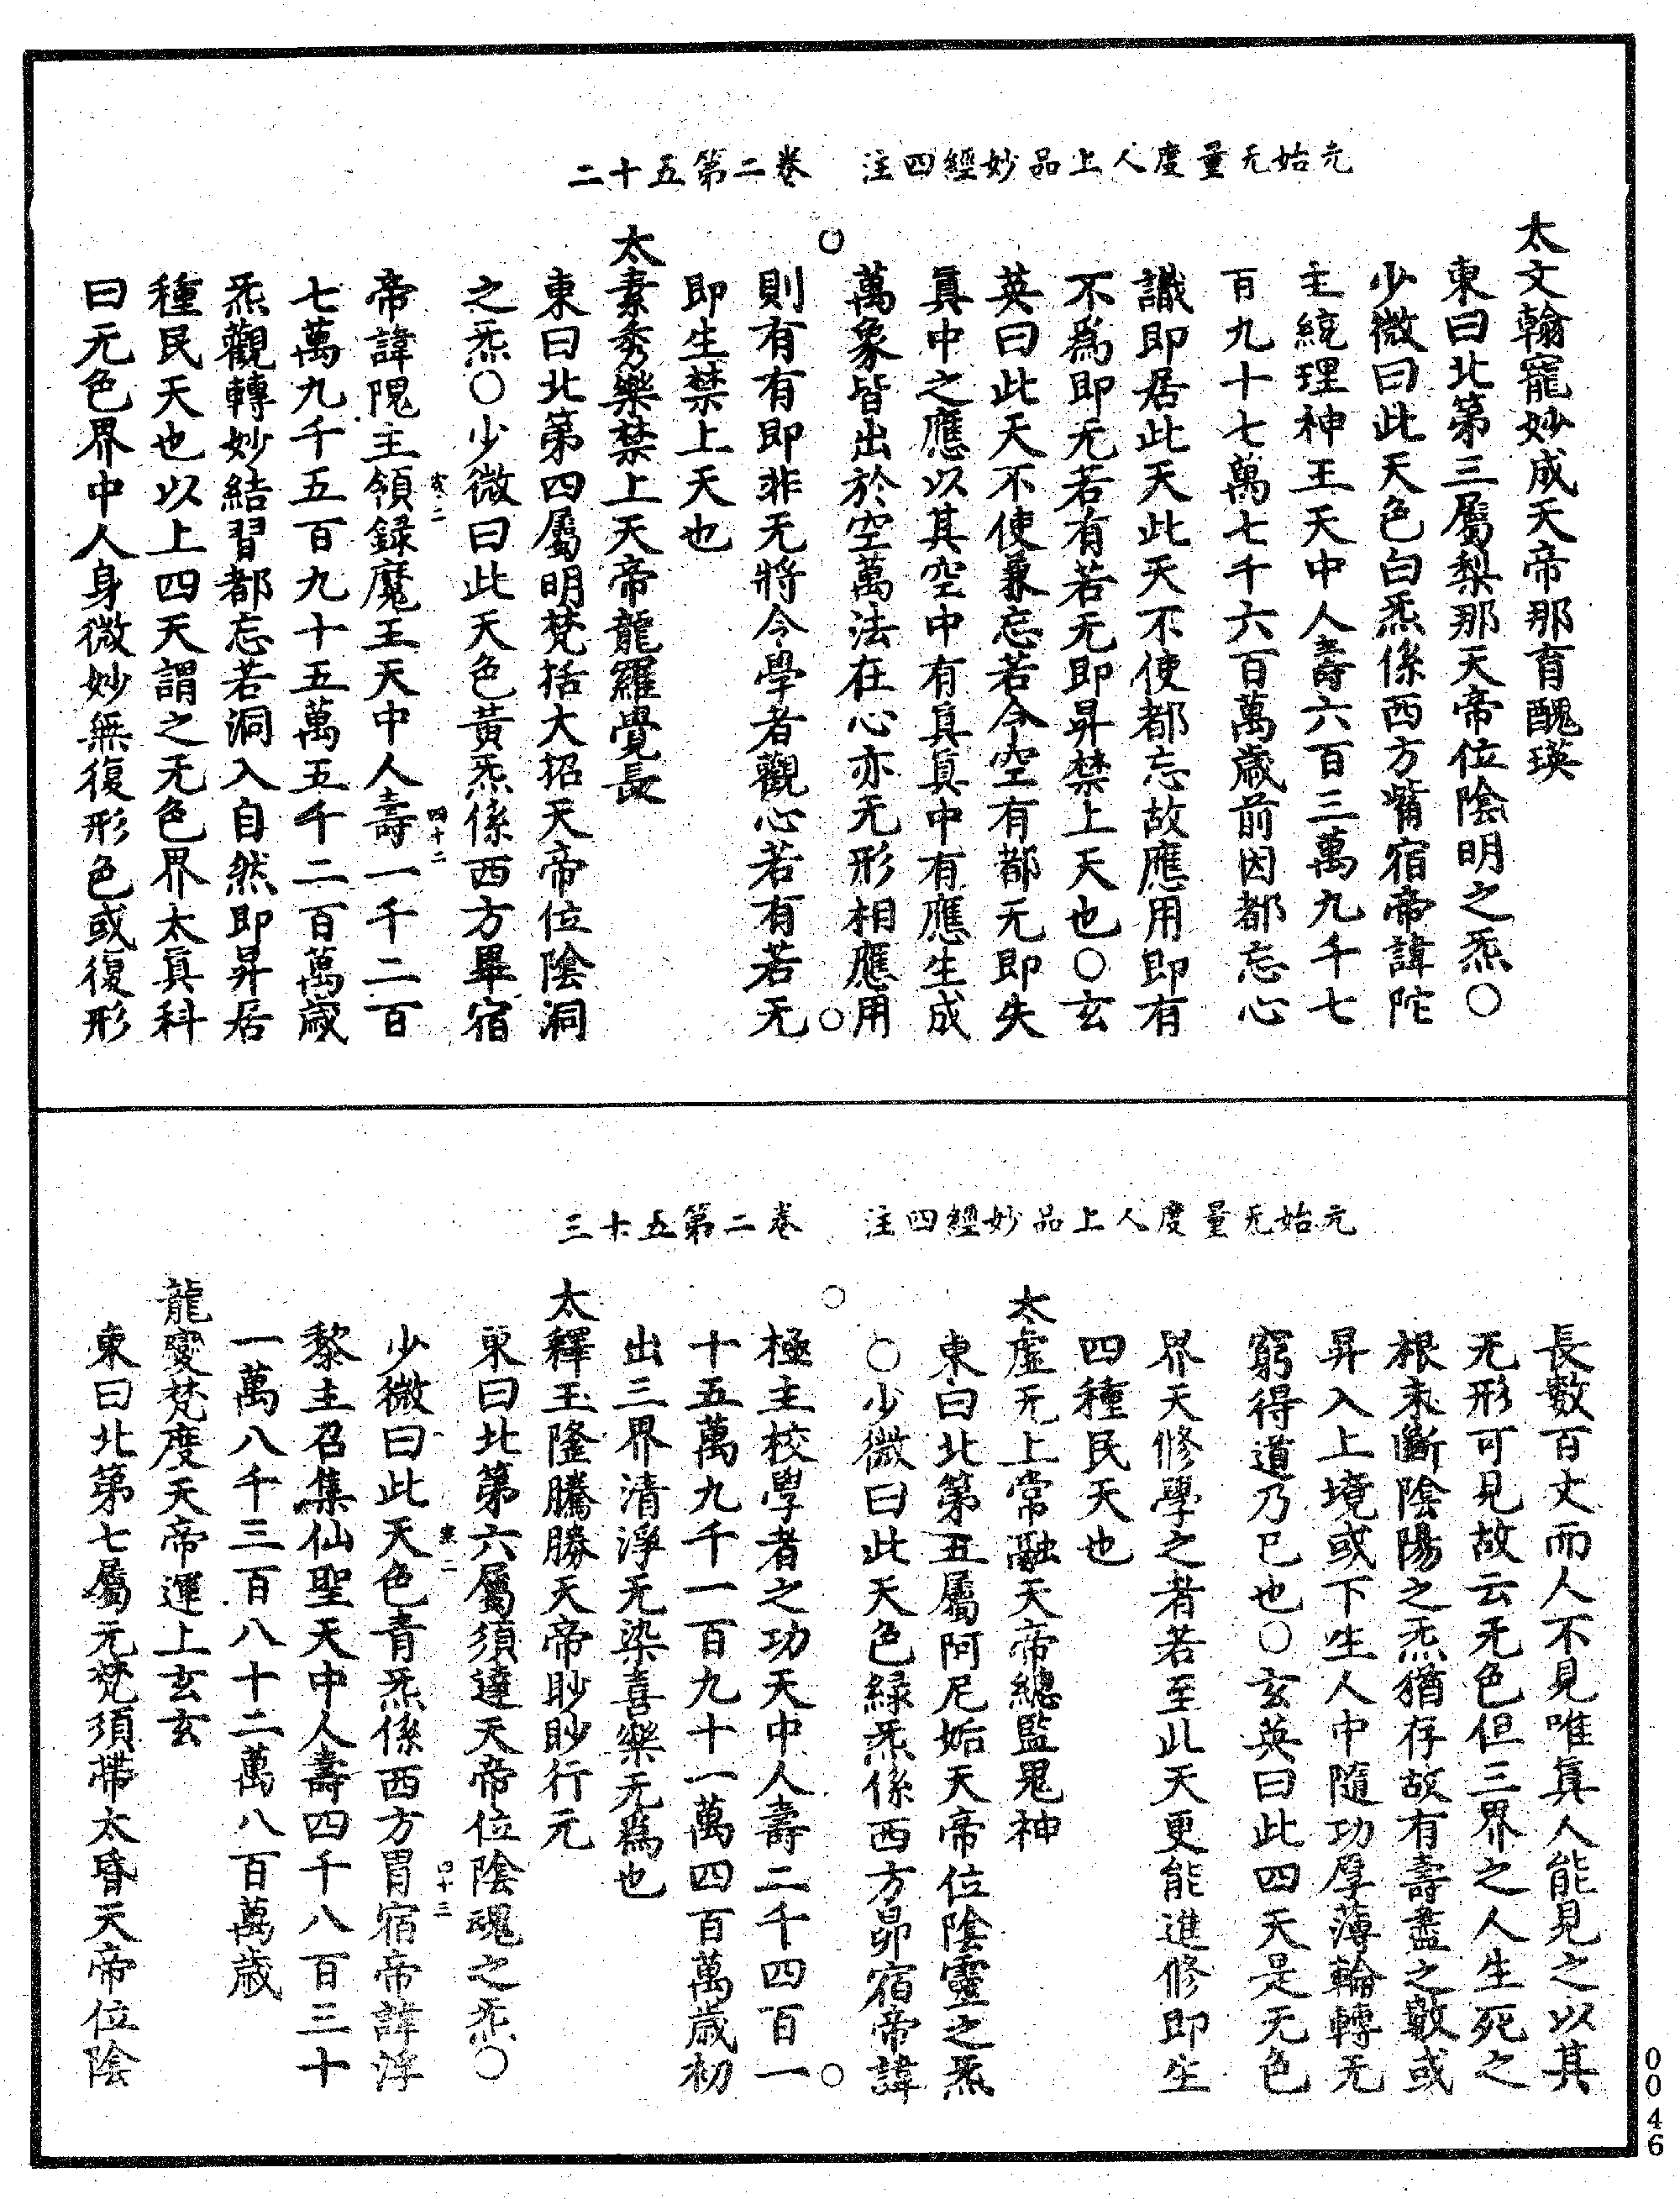 元始无量度人上品妙經四注　卷二第五十二
太文翰寵妙成天帝那育醜瑛
東曰北第三屬梨那天帝位陰明之炁〇
少微曰此天色白炁係西方觜宿帝諱陀
主統理神王天中人壽六百三萬九千七
百九十七萬七千六百萬歲前因都忘心
識即居此天此天不使都忘故應用即有
不為即无若有若无即昇禁上天也〇玄
英曰此天不使兼忘若令空有都无即失
真中之應以其空中有真真中有應生成
萬象皆出於空萬法在心亦无形相應用
則有有即非无將令學者觀心若有若无
即生禁上天也
太素秀樂禁上天帝龍羅覺長
東曰北第四屬明梵括大招天帝位陰洞
之炁〇少微曰此天色黃炁係西方畢宿
寒二　四十二
帝諱隗主領錄魔王天中人壽一千二百
七萬九千五百九十五萬五千二百萬歲
炁觀轉妙結習都忘若洞入自然即昇居
種民天也以上四天謂之无色界太真科
曰无色界中人身微妙無復形色或復形
元始无量度人上品妙經四注　卷二第五十三
長數百丈而人不見唯真人能見之以其
无形可見故云无色但三界之人生死之
根未斷陰陽之炁猶存故有壽盡之數或
昇入上境或下生人中隨功厚薄輪轉无
窮得道乃已也〇玄英曰此四天是无色
界天修學之者若至此天更能進修即生
四種民天也
太虛无上常融天帝總監鬼神
東曰北第五屬阿尼姤天帝位陰靈之炁
〇少微曰此天色綠炁係西方昴宿帝諱
極主校學者之功天中人壽二千四百一
十五萬九千一百九十一萬四百萬歲初
出三界清淨无染喜樂无為也
太釋玉隆騰勝天帝眇眇行元
東曰北第六屬須達天帝位陰魂之炁〇
寒二　四十三
少微曰此天色青炁係西方胃宿帝諱浮
黎主召集仙聖天中人壽四千八百三十
一萬八千三百八十二萬八百萬歲
龍變梵度天帝運上玄玄
東曰北第七屬元梵須帶太昏天帝位陰
0046